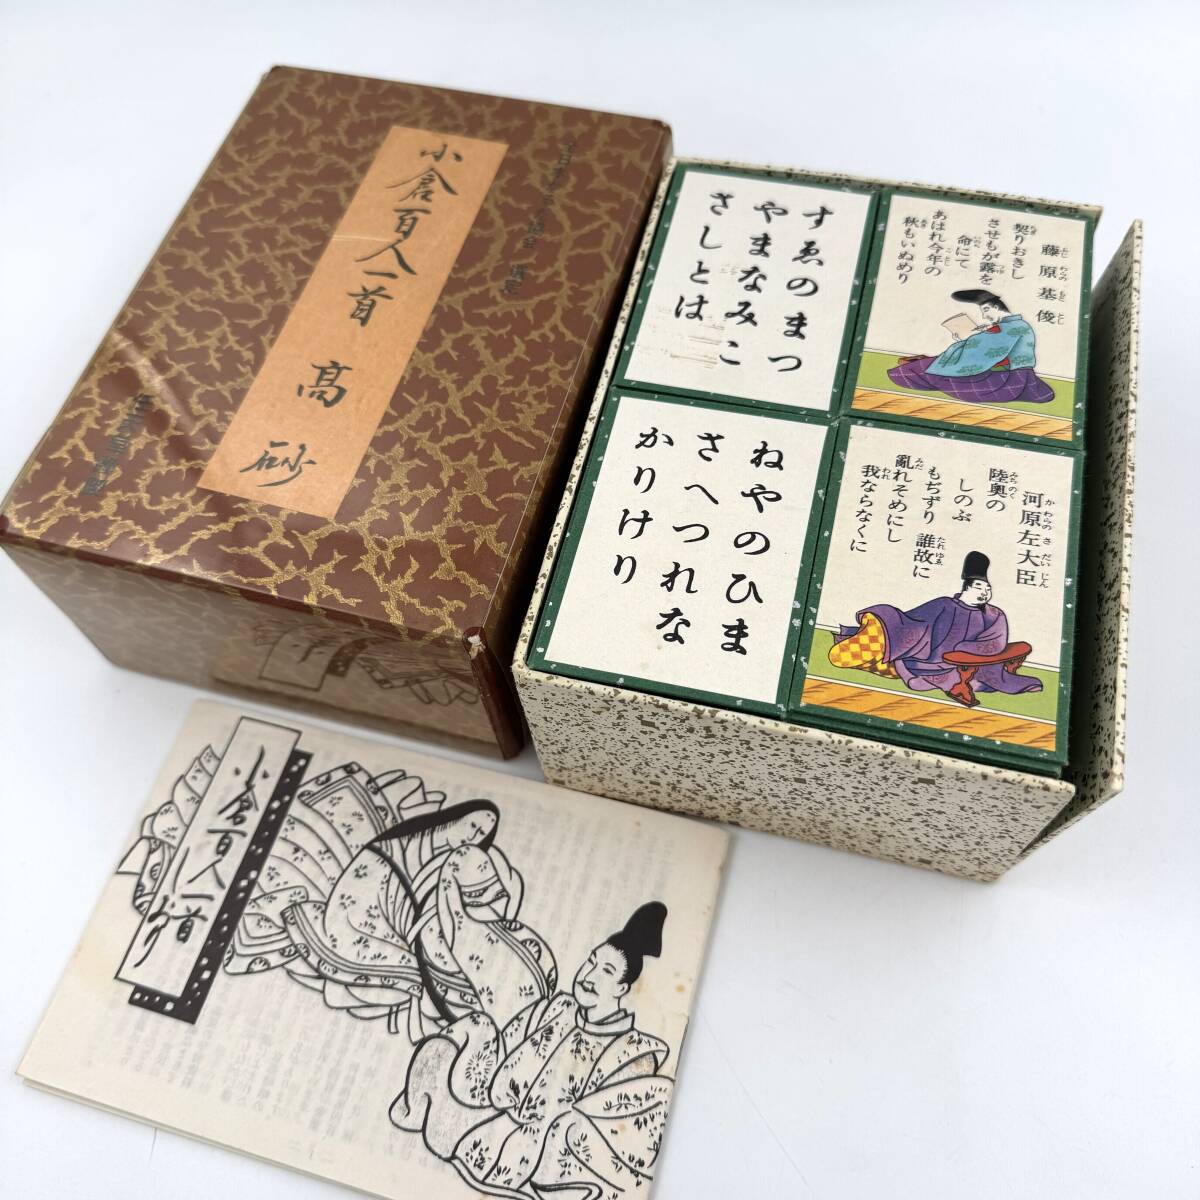 小倉百人一首 高砂
すゑのまつ
やまなみこ
さしとは
藤原基俊
契りおきし
させもが露を
命にて
あはれ今年の
秋もいぬめり
ねやのひま
さへつれな
かりけり
河原左大臣
陸奥の
しのぶ
もぢずり 誰故に
亂れそめにし
我ならなくに
小倉百人一首